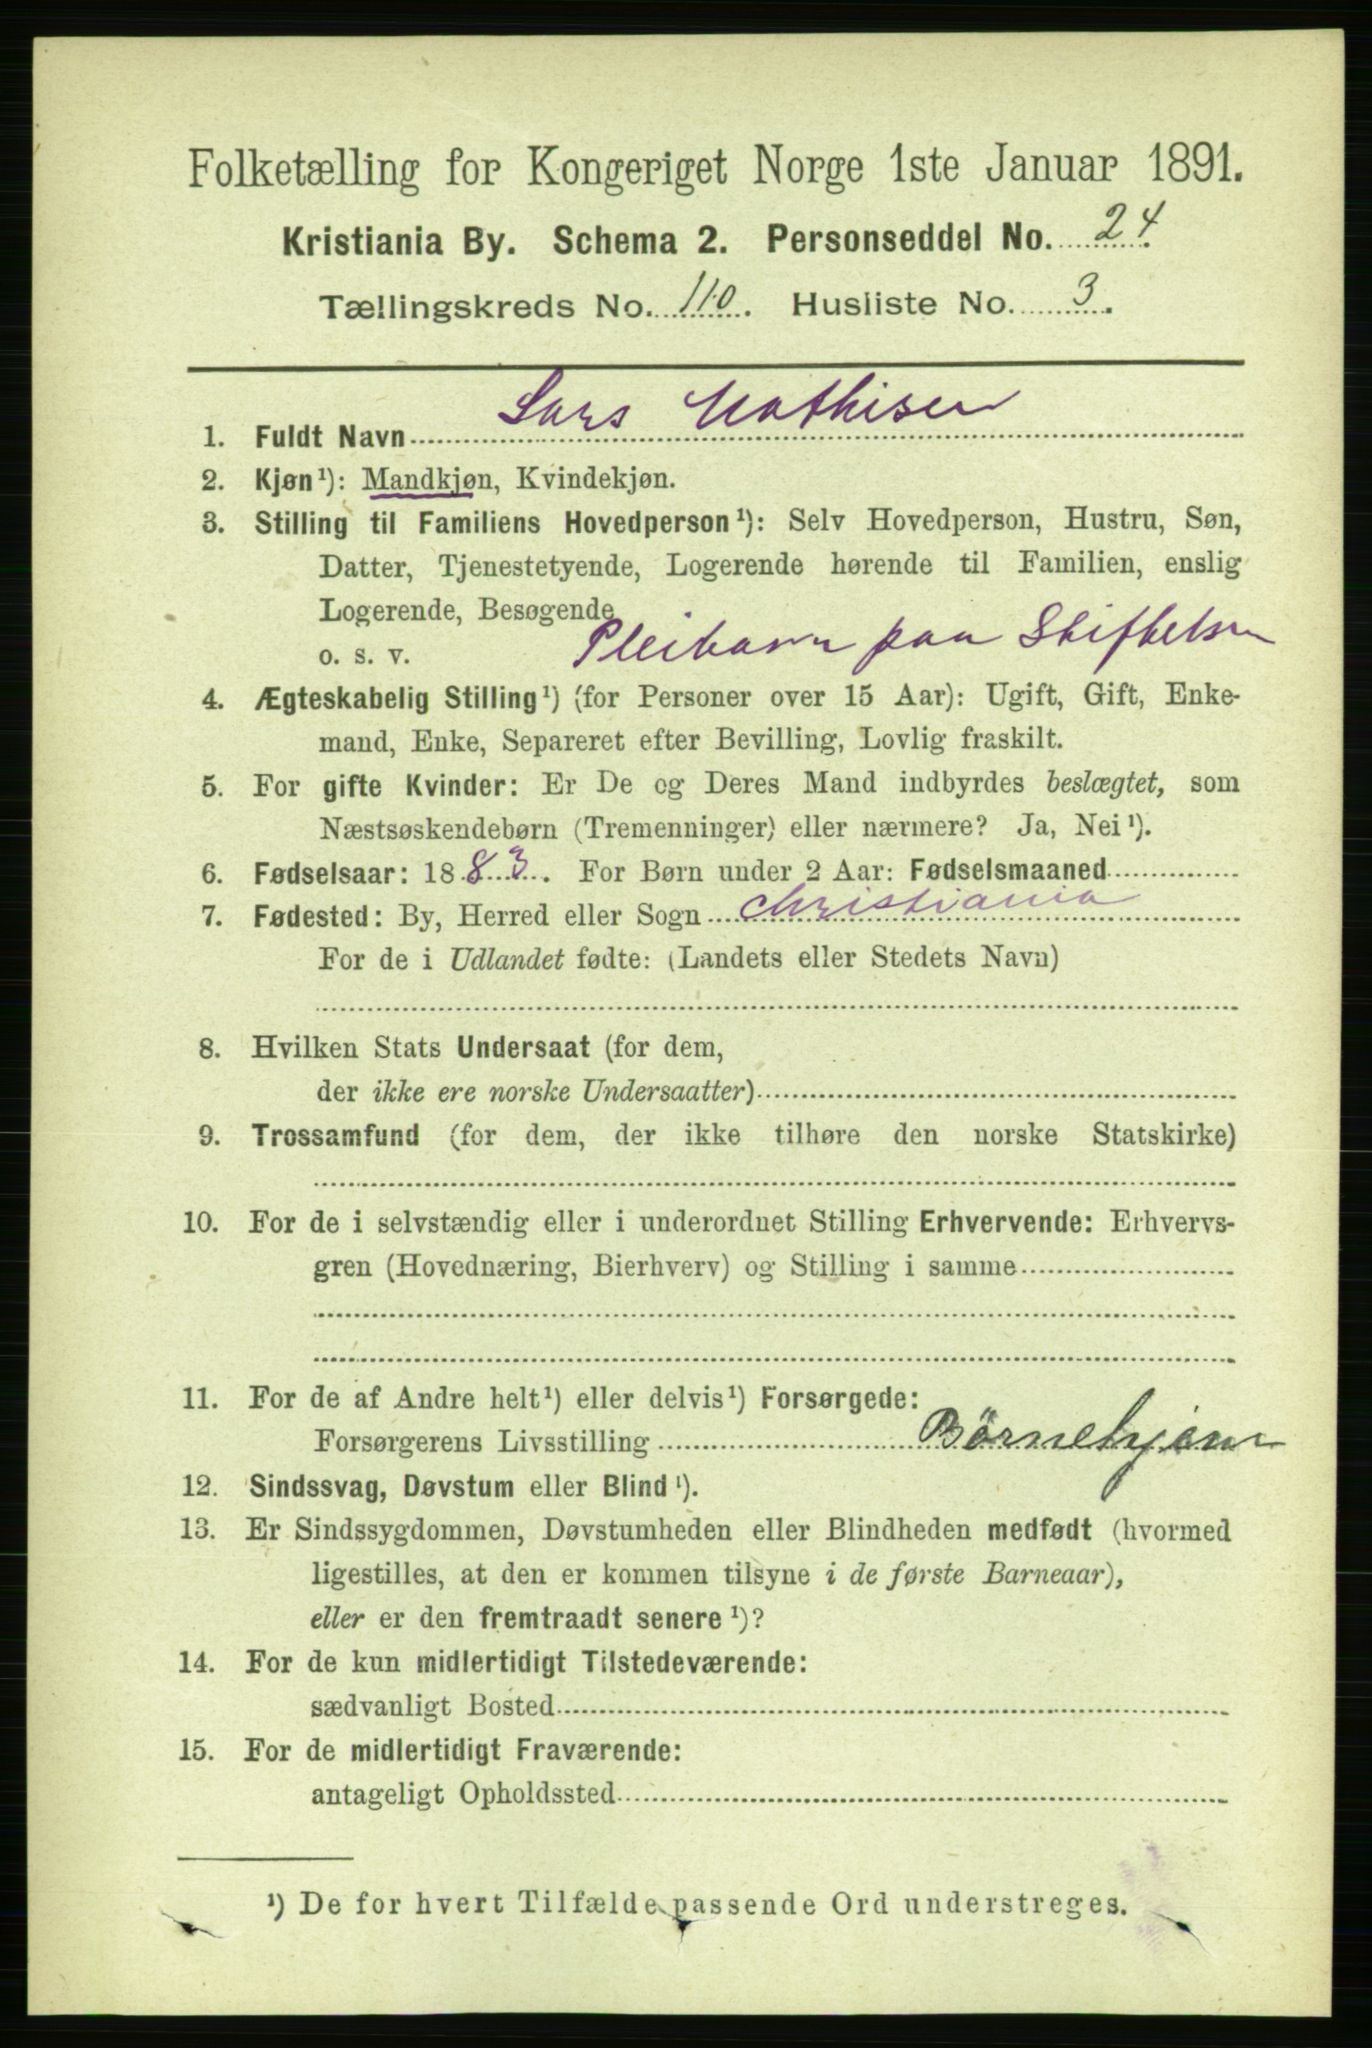 Folketælling for Kongeriget Norge 1ste Januar 1891.
Kristiania By. Schema 2. Personseddel No. 24
Tællingskreds No. 110. Husliste No. 3.
1. Fuldt Navn Lars Mathisen
2. Kjøn¹): Mandkjøn, Kvindekjøn.
3. Stilling til Familiens Hovedperson¹): Selv Hovedperson, Hustru, Søn,
Datter, Tjenestetyende, Logerende hørende til Familien, enslig
Logerende, Besøgende
o. s. v. Pleibarn paa Stiftelsen
4. Ægteskabelig Stilling¹) (for Personer over 15 Aar): Ugift, Gift, Enke-
mand, Enke, Separeret efter Bevilling, Lovlig fraskilt.
5. For gifte Kvinder: Er De og Deres Mand indbyrdes beslægtet, som
Næstsøskendebørn (Tremenninger) eller nærmere? Ja, Nei¹).
6. Fødselsaar: 1883. For Børn under 2 Aar: Fødselsmaaned
7. Fødested: By, Herred eller Sogn Christiania
For de i Udlandet fødte: (Landets eller Stedets Navn)
8. Hvilken Stats Undersaat (for dem,
der ikke ere norske Undersaatter)
9. Trossamfund (for dem, der ikke tilhøre den norske Statskirke)
10. For de i selvstændig eller i underordnet Stilling Erhvervende: Erhvervs-
gren (Hovednæring, Bierhverv) og Stilling i samme
11. For de af Andre helt¹) eller delvis¹) Forsørgede:
Forsørgerens Livsstilling Börnehjem
12. Sindssvag, Døvstum eller Blind¹).
13. Er Sindssygdommen, Døvstumheden eller Blindheden medfødt (hvormed
ligestilles, at den er kommen tilsyne i de første Barneaar),
eller er den fremtraadt senere¹)?
14. For de kun midlertidigt Tilstedeværende:
sædvanligt Bosted
15. For de midlertidigt Fraværende:
antageligt Opholdssted
¹) De for hvert Tilfælde passende Ord understreges.